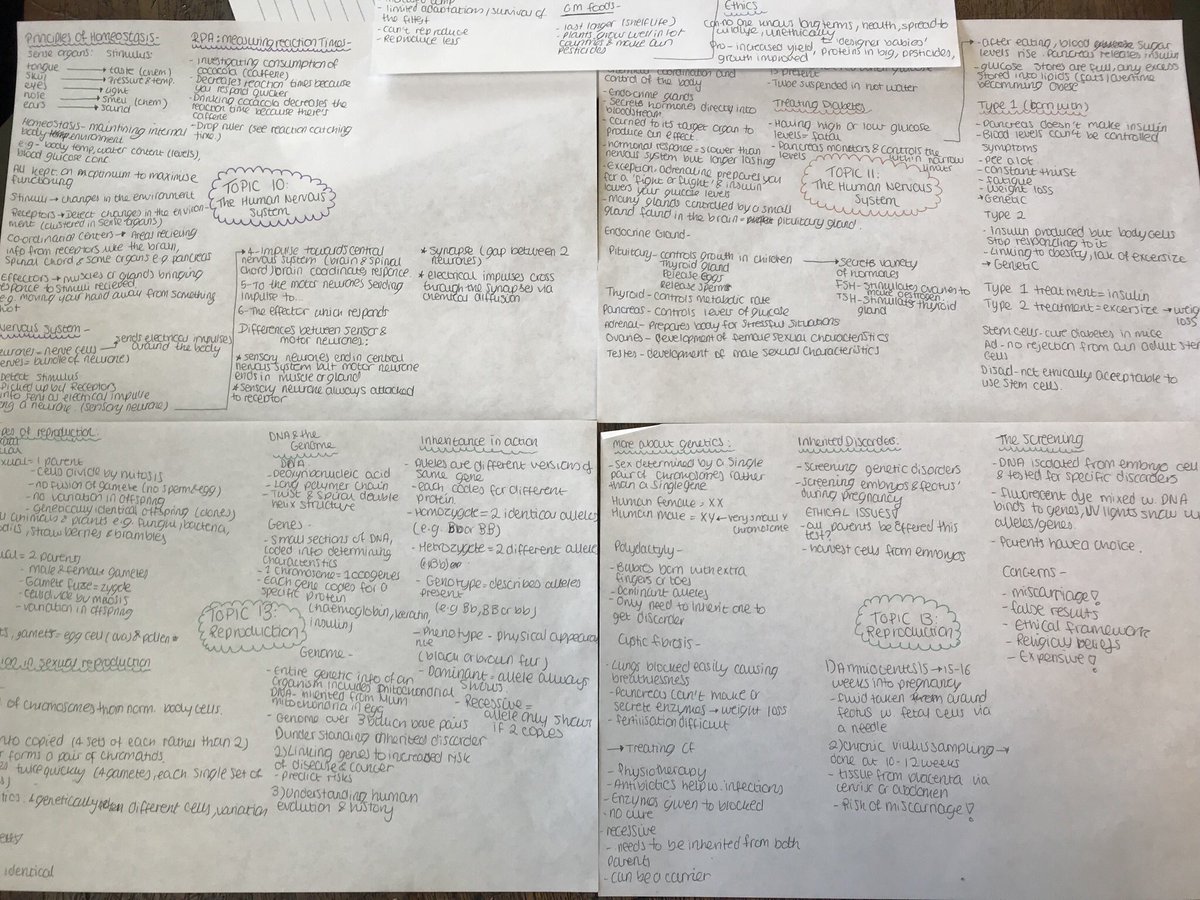 - limited adaptations/survival of
the fittest
- can't reproduce
- Reproduce less
GM foods -
- last longer (shelf life)
- plants grow well in hot
countries & make own
pesticides
Ethics
Con- no one knows long terms, health, spread to
wildlife, unethically
↳ 'designer babies'
Pro - increased yield, proteins in big, pesticides,
growth improved
Principles of Homeostasis -
Sense organs: Stimulus
tongue → taste (chem)
skin → Pressure & temp.
eyes → Light
nose → smell (chem)
ears → sound
Homeostasis - maintining internal
body environment
e.g - body temp, water content (levels),
blood glucose conc
All kept on a optimum to maximise
functioning
Stimuli → changes in the environment
Receptors → Detect changes in the environ-
ment (clustered in sense organs)
Co-ordinance centers → Areas recieving
info from receptors like the brain,
Spinal chord & some organs e.g pancreas
Effectors → muscles or glands bringing
responce to stimuli recieved
e.g. moving your hand away from something
hot
Nervous System -
neurones = nerve cells → sends electrical impulses
around the body
nerves = bundle of neurone)
Detect stimulus
Picked up by Receptors
info sent as electrical impulse
along a neurone. (sensory neurone)
RPA: measuring reaction Times -
- investigating consumption of
cocacola (caffeine)
- Decreases reaction times because
you respond quicker
- Drinking cocacola decreases the
reaction time because there's
caffeine
- Drop ruler (see reaction catching
time)
TOPIC 10:
The Human Nervous
System
4- Impulse towards central
nervous system (brain & spinal
chord) brain coordinate responce
5- To the motor neurones sending
impulse to...
6- The effector which responds
Differences between sensor &
motor neurones:
* sensory neurones end in central
nervous system but motor neurone
ends in muscle or gland
* Sensory neurone always attatched
to receptor
* Synapse (gap between 2
neurones)
* electrical impulses cross
through the synapses via
chemical diffusion
chemical coordination and
control of the body
- Endocrine glands
- Secrete hormones directly into
bloodstream
- carried to its target organ to
produce an effect
- hormonal response = slower than
nervous system but longer lasting
- Exception, adrenaline prepares you
for a 'fight or flight' & insulin
lowers your glucose levels
- many glands controlled by a small
gland found in the brain = pituitary gland.
Endocrine Gland -
Pituitary - controls growth in children
Thyroid gland
Release eggs
Release sperms
→ Secretes variety
of hormones
FSH - Stimulates ovaries to
make oestrogen
TSH - Stimulates thyroid
gland
Thyroid - controls metabolic rate
Pancreas - controls levels of glucose
Adrenal - Prepares body for stressful situations
Ovaries - development of female sexual characteristics
Testes - development of male sexual characteristics
is present
- Tube suspended in hot water
Treating Diabetes
- Having high or low glucose
levels = fatal
- Pancreas monitors & controls the
levels within narrow
limits
TOPIC 11:
The Human Nervous
System
→ after eating, blood sugar
levels rise pancreas releases insulin
- glucose stores are full, any excess
stored into lipids (fats) overtime
becomming obese
Type 1 (born with)
- Pancreas doesn't make insulin
- Blood levels can't be controlled
Symptoms
- pee alot
- constant thirst
- fatigue
- weight loss
→ Genetic
Type 2
- Insulin produced but body cells
stop responding to it
- Linking to obesity, lack of excersize
→ Genetic
Type 1 treatment = insulin
Type 2 treatment = excersize → weight
loss
Stem cells - cure diabetes in mice
Ad - no rejection from an adult stem
cells
Disad - not ethically acceptable to
use stem cells.
Types of reproduction:
asexual = 1 parent
- cells divide by mitosis
- no fusion of gamete (no sperm & egg)
- no variation in offspring
- genetically identical offspring (clones)
animals & plants e.g. fungi, bacteria,
strawberries & brambles
Sexual = 2 parents
- male & female gametes
- Gamete fuze = zygote
- Cell divide by meiosis
- variation in offspring
gametes = egg cell (ova) & pollen *
in sexual reproduction
of chromosomes than norm. body cells.
info copied (4 sets of each rather than 2)
forms a pair of chromatids
twice quickly (4 gametes), each single set of
genetically different cells, variation
identical
DNA & the
Genome
DNA
- Deoxyribonucleic acid
- Long polymer chain
- Twist & spiral double
helix structure
Genes -
- small sections of DNA,
coded into determining
characteristics
- 1 chromosome = 1000 genes
- Each gene codes for a
specific protein
(haemoglobin, keratin,
insulin)
TOPIC 13:
Reproduction
Genome -
- Entire genetic info of an
organism includes mitochondrial
DNA - inherited from mum
mitochondria in egg
- Genome over 3 billion base pairs
1) understanding inherited disorder
2) Linking genes to increased risk
of disease & cancer
- predict risks
3) Understanding human
evolution & history
Inheritance in action
- Alleles are different versions of
same gene
- each codes for different
protein
- Homozygote = 2 identical alleles
(e.g. bb or BB)
- Hetrozygote = 2 different allele
(e.g. Bb)
- Genotype = describes alleles
present
(e.g Bb, BB or bb)
- Phenotype - physical appearance
(black or brown fur)
- Dominant = allele always
shows
- Recessive =
allele only shows
if 2 copies
more about genetics:
- Sex determined by a single
pair of chromosomes rather
than a single gene
Human female = XX
Human male = XY ← very small Y
chromosome
Polydactyly -
- Babies born with extra
fingers or toes
- Dominant alleles
- Only need to inherit one to
get disorder
Cystic fibrosis -
- Lungs blocked easily causing
breathlessness
- Pancreas can't make or
secrete enzymes → weight loss
- Fertilisation difficult
→ Treating CF
- Physiotherapy
- Antibiotics help w. infections
- Enzymes given to blocked
- no cure
- recessive
- needs to be inherited from both
parents
- can be a carrier
Inherited Disorders.
- Screening genetic disorders
- Screening embryos & foetus'
during pregnancy
ETHICAL ISSUES?
- all parents be offered this
test?
- harvest cells from embryos
TOPIC 13:
Reproduction
1) Amniocentesis → 15-16
weeks into pregnancy
- fluid taken from around
foetus w fetal cells via
a needle
2) chronic villus sampling →
done at 10-12 weeks
- tissue from placenta via
cervix or abdomen
- Risk of miscarriage!
The Screening
- DNA isolated from embryo cell
& tested for specific disorders
- fluorescent dye mixed w. DNA
binds to genes, UV lights show up
alleles/genes.
- Parents have a choice.
Concerns -
- miscarriage!
- false results
- Ethical framework
- Religious beliefs
- Expensive!